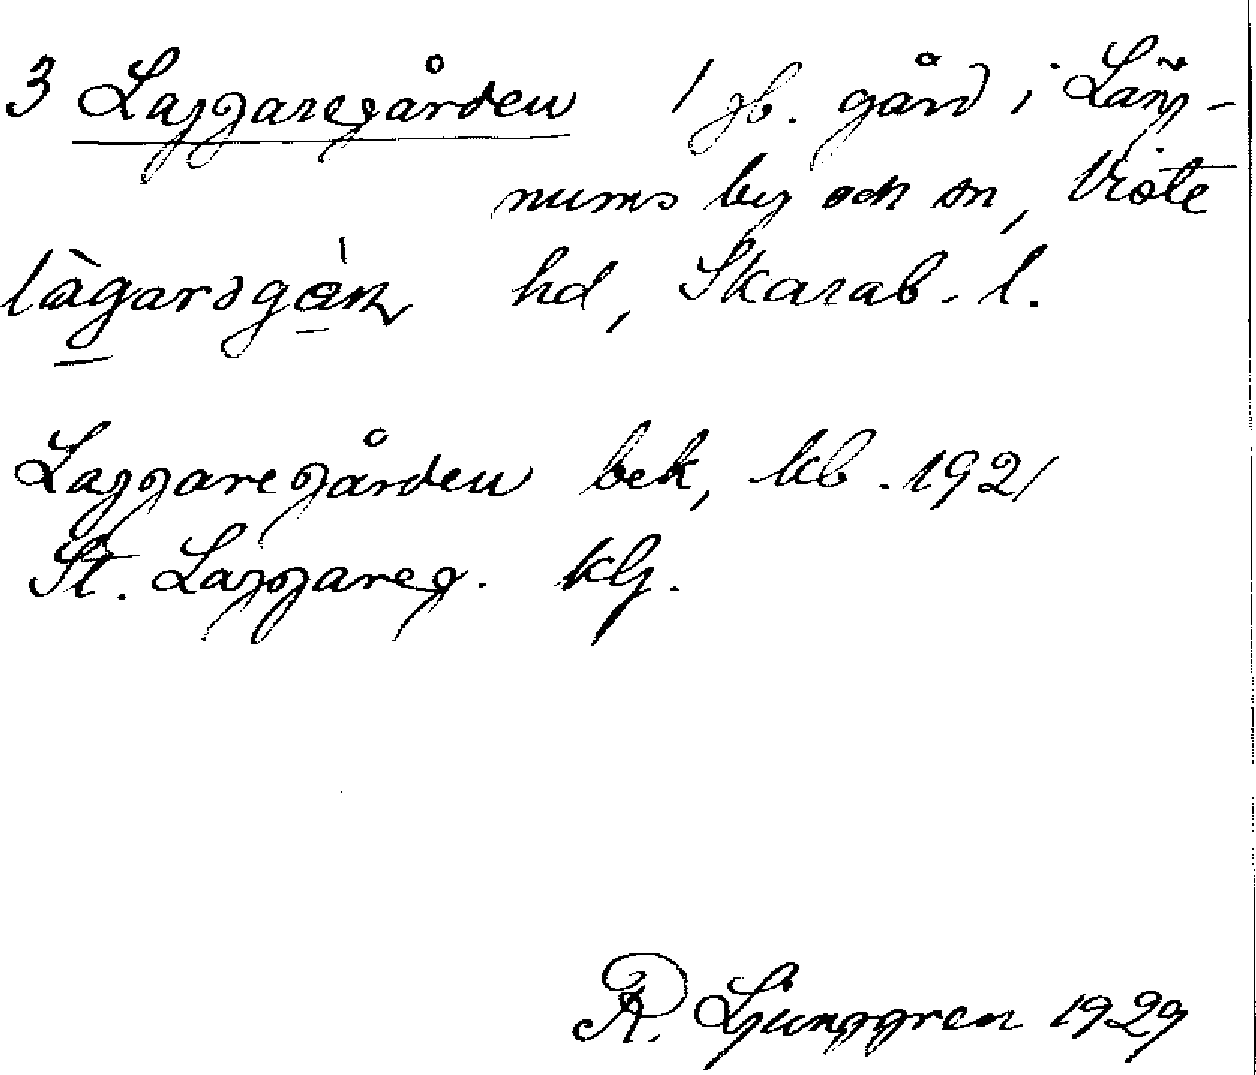 3 Laggaregården 1 gb. gård i Läng-
nums by och sn, Viste
hd, Skarab. l.
Laggaregården bek, kb. 1921
St. Laggareg. klg.
R. Ljunggren 1929